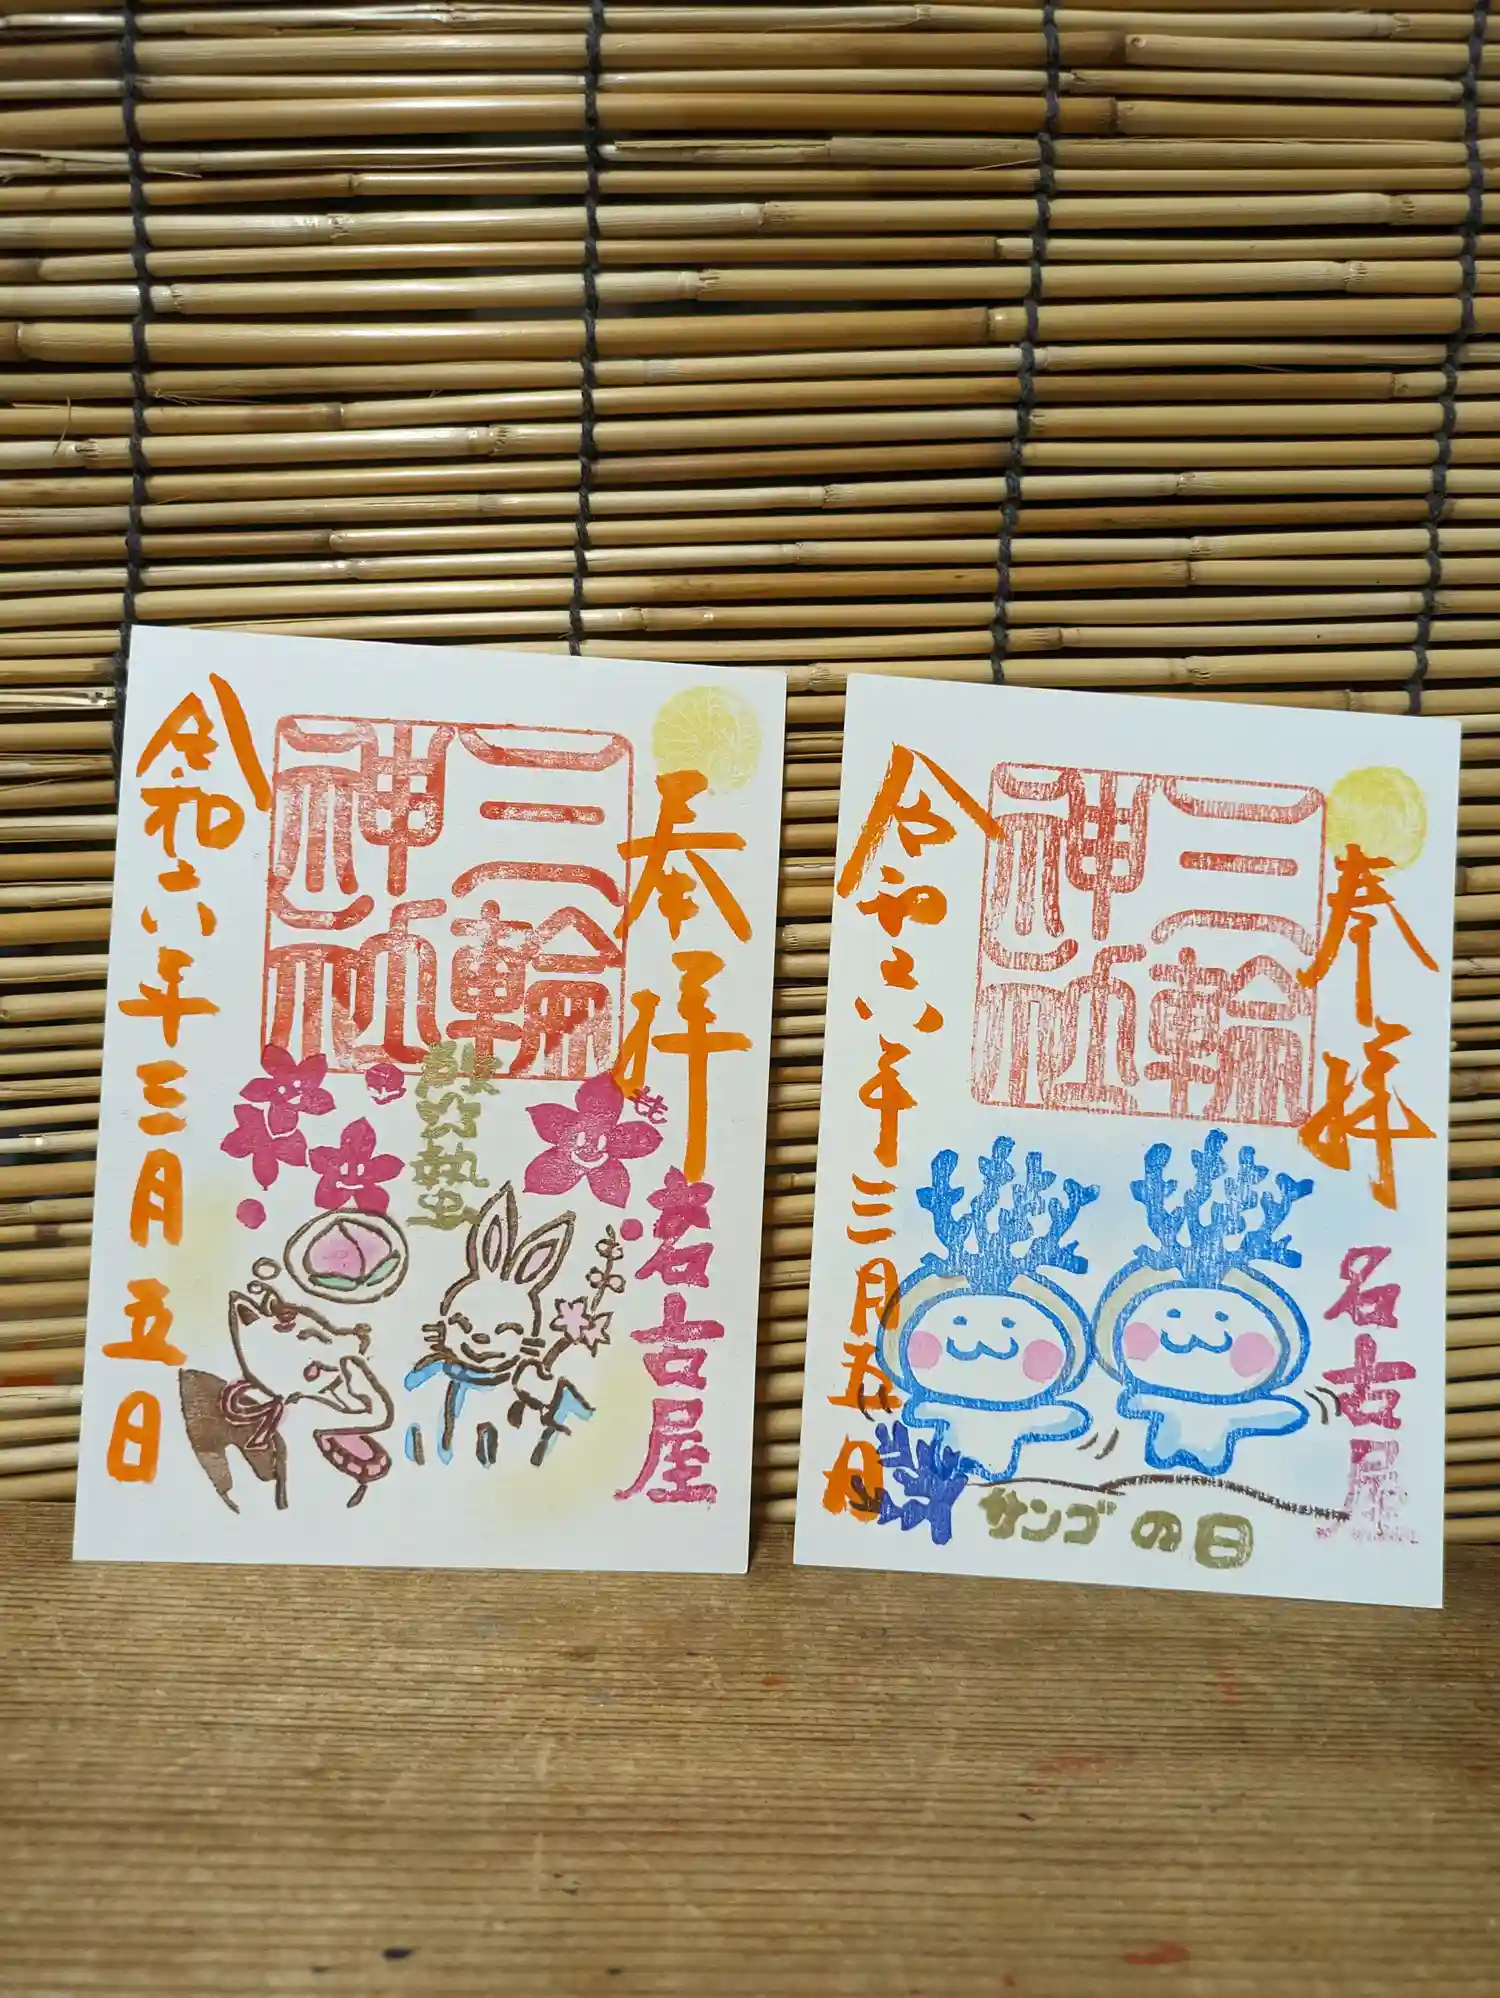 奉拝
三輪
神社
啓蟄
もも
名古屋
令和六年三月五日
奉拝
三輪
神社
名古屋
令和六年三月五日
サンゴの日